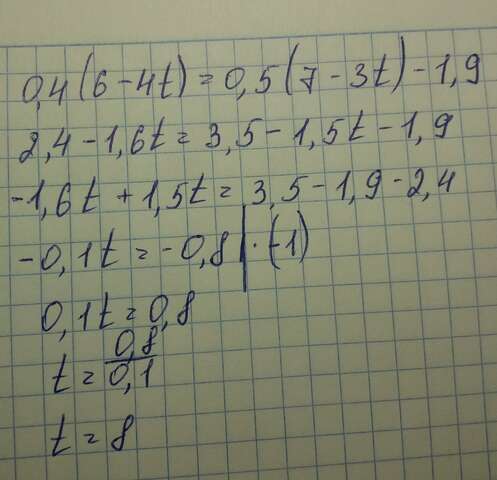 0,4(6-4t)=0,5(7-3t)-1,9
2,4-1,6t=3,5-1,5t-1,9
-1,6t+1,5t=3,5-1,9-2,4
-0,1t=-0,8|·(-1)
0,1t=0,8
t=0,8/0,1
t=8